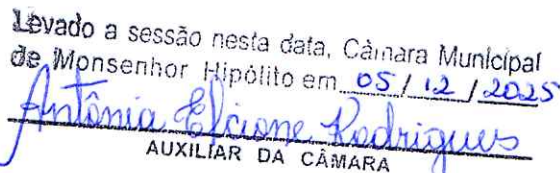 Levado a sessão nesta data, Câmara Municipal
de Monsenhor Hipólito em 05/12/2025
Antônia Elcione Rodrigues
AUXILIAR DA CÂMARA